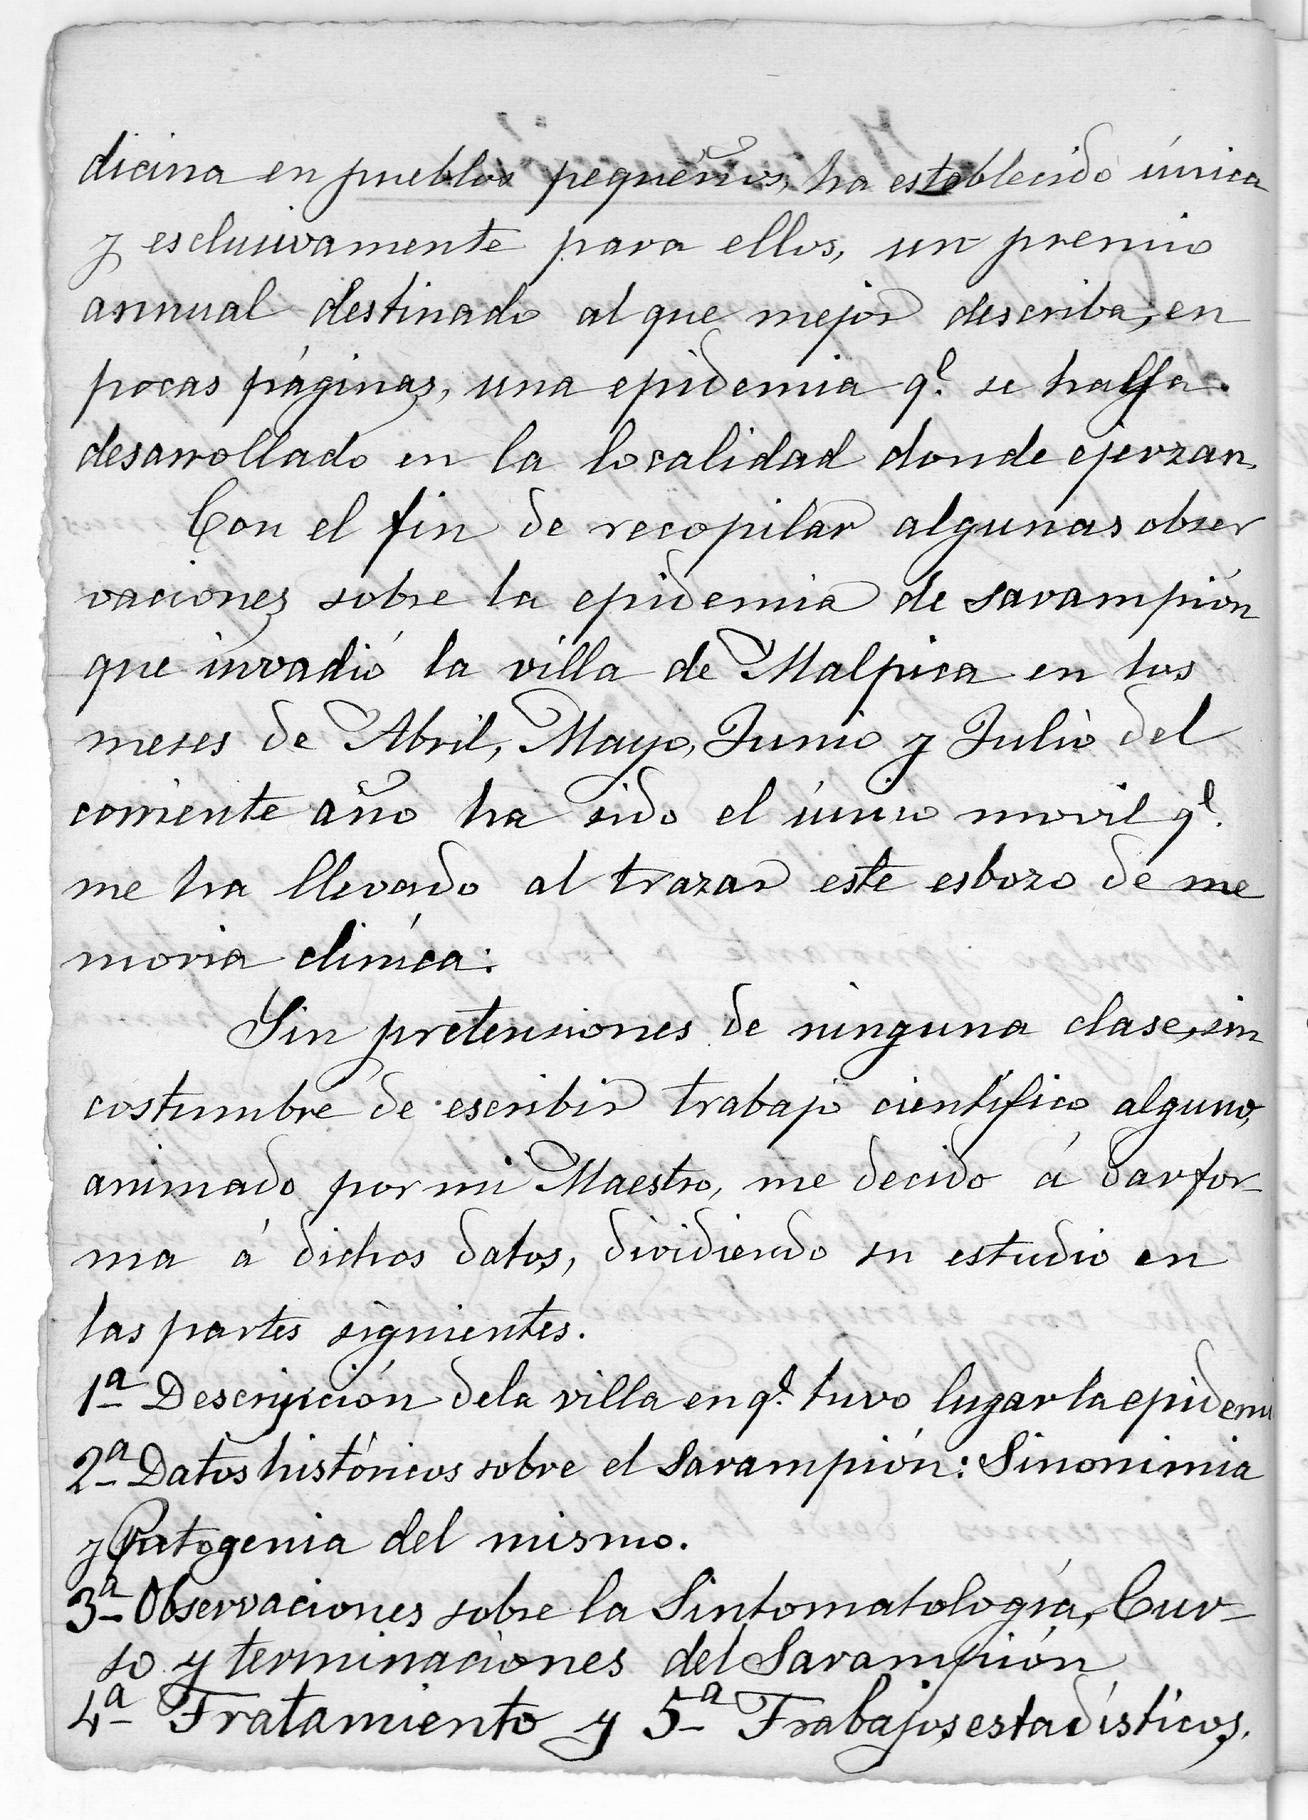 dicina en pueblos pequeños, ha establecido única
y esclusivamente para ellos, un premio
annual destinado al que mejor describa, en
pocas páginas, una epidemia q.e se halla
desarrollado en la localidad donde ejerzan.
Con el fin de recopilar algunas obser
vaciones sobre la epidemia de sarampión
que invadió la villa de Malpica en los
meses de Abril, Mayo, Junio y Julio del
corriente año ha sido el único movil q.e
me ha llevado al trazar este esbozo de me
moria clínica:
Sin pretensiones de ninguna clase, sin
costumbre de escribir trabajo científico alguno,
animado por mi Maestro, me decido á dar for-
ma á dichos datos, dividiendo su estudio en
las partes siguientes.
1ª Descripción de la villa en q.e tuvo lugar la epidemi
2ª Datos históricos sobre el Sarampión: Sinonimia
y Patogenia del mismo.
3ª Observaciones sobre la Sintomatología, Cur-
so y terminaciones del Sarampión
4ª Tratamiento y 5ª Trabajos estadísticos.